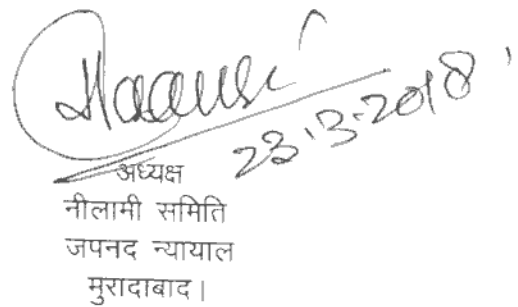 23.3.2018
अध्यक्ष
नीलामी समिति
जपनद न्यायाल
मुरादाबाद।